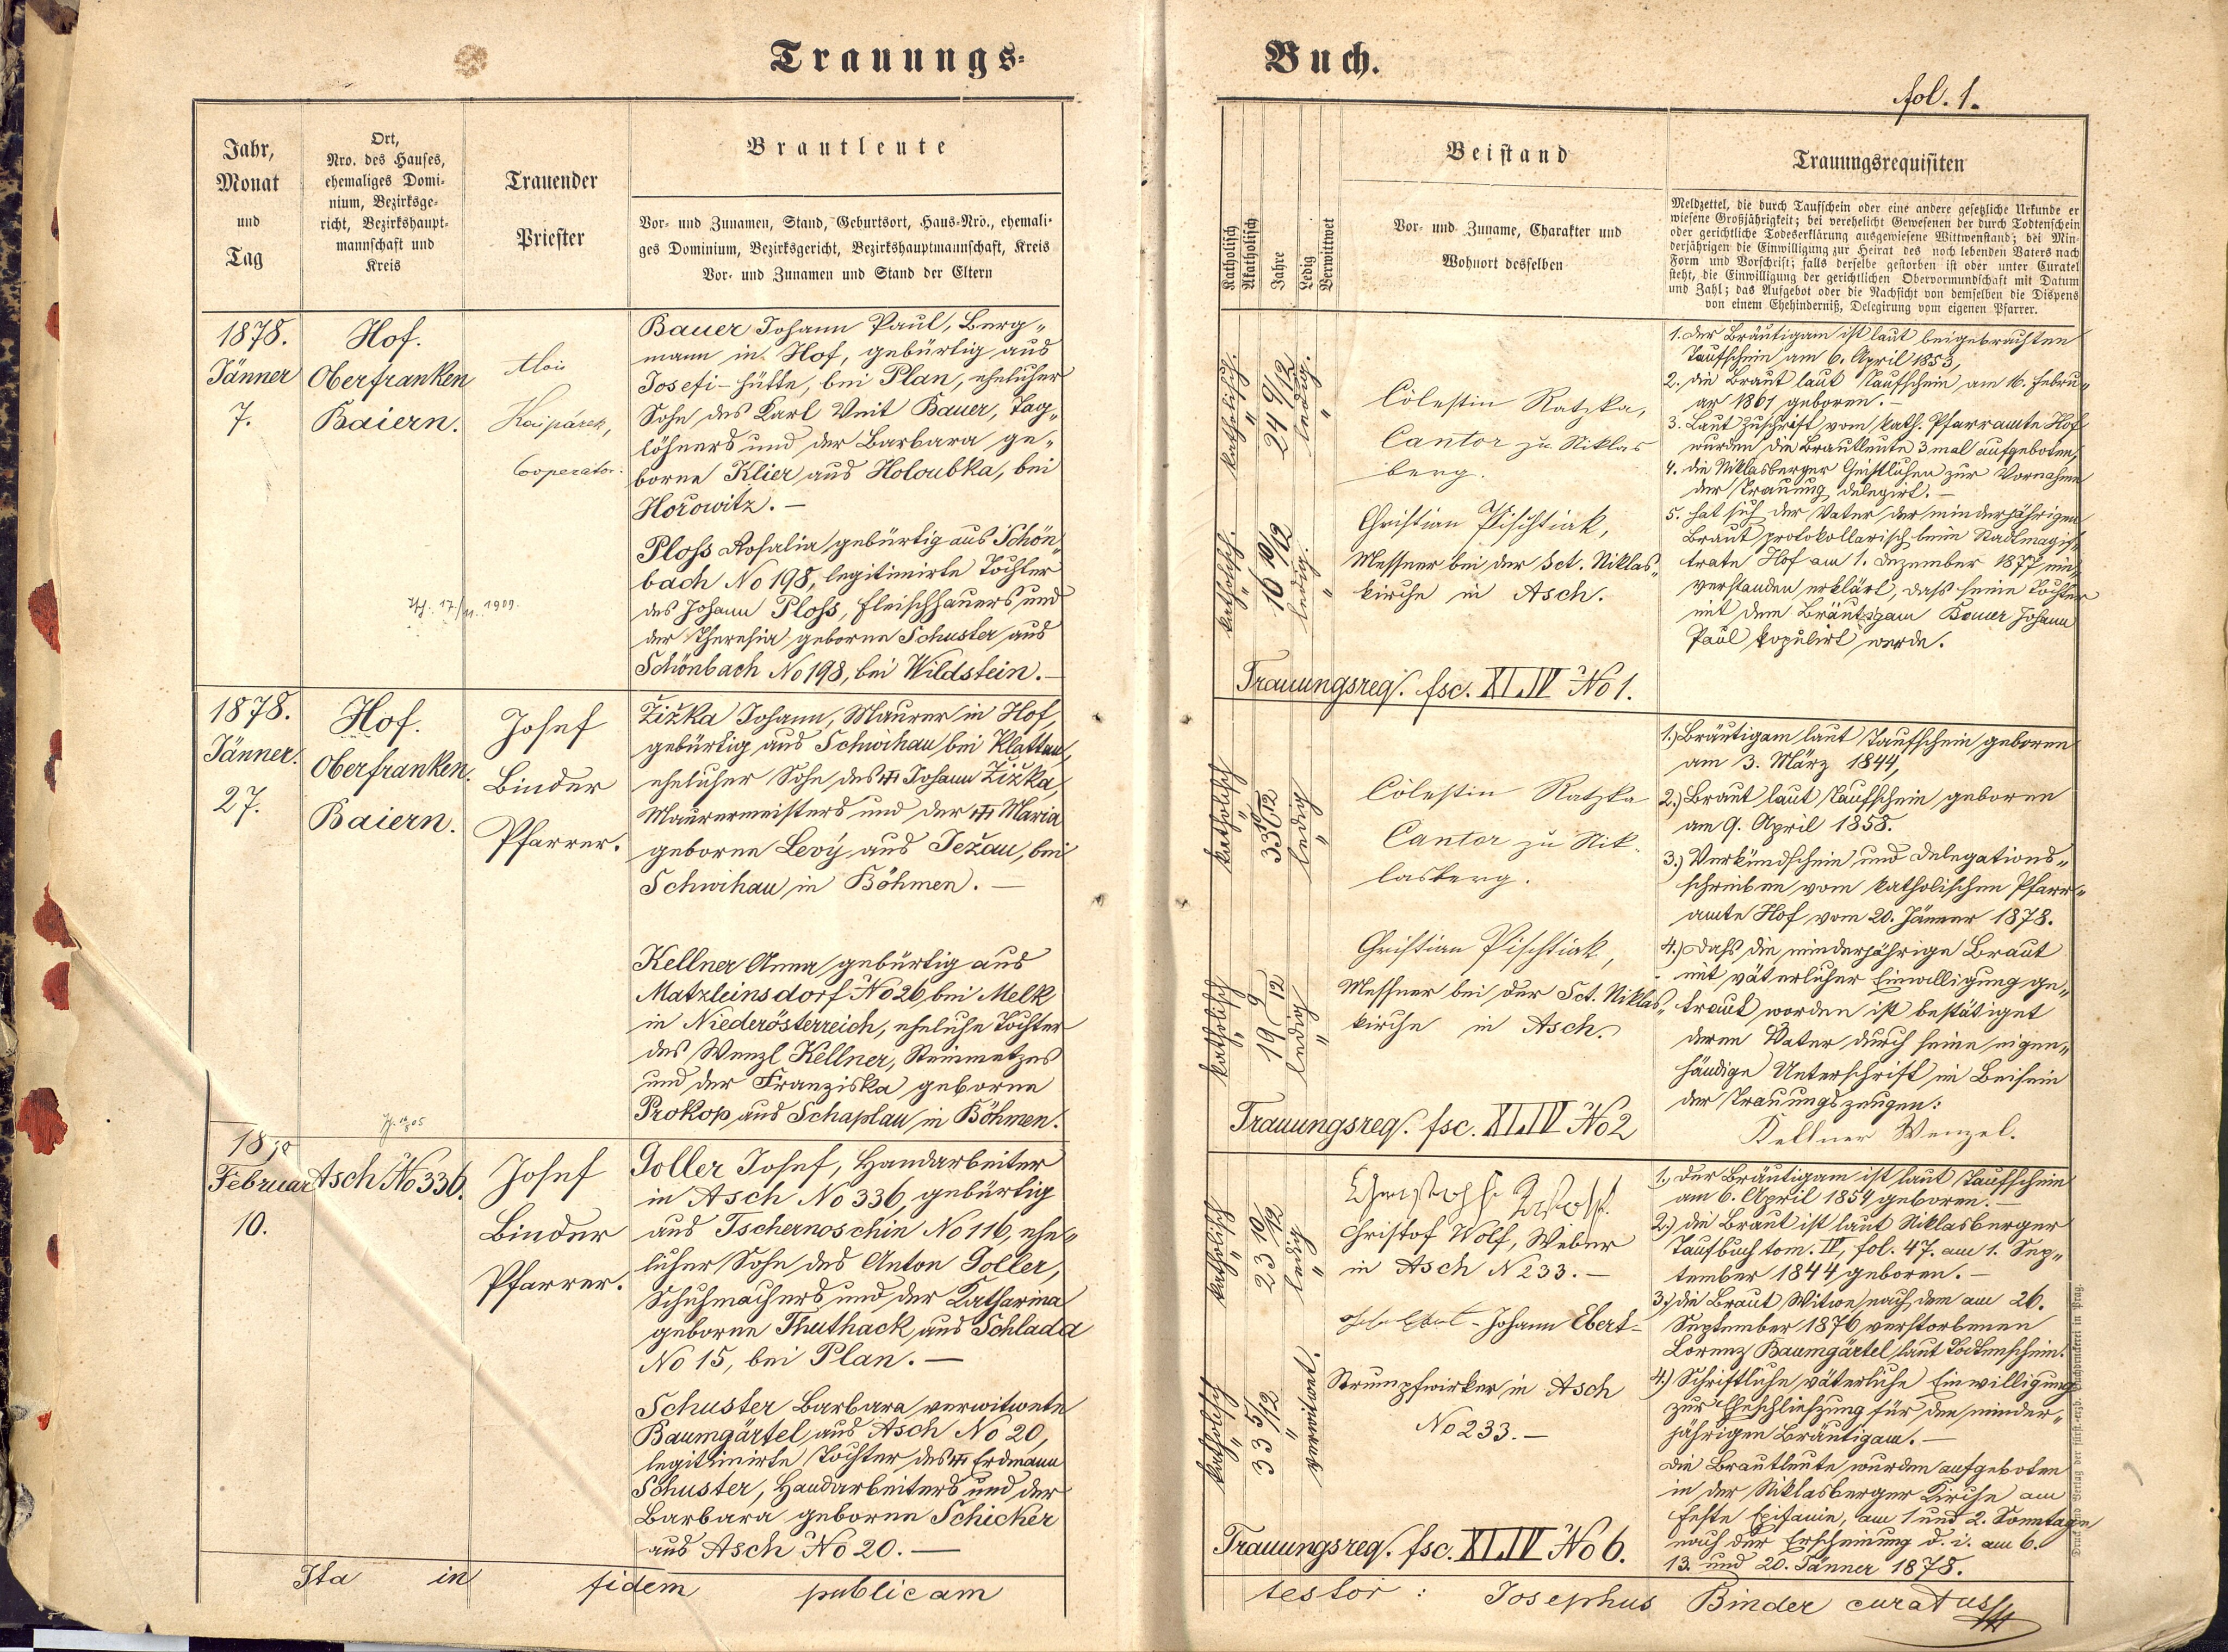 Trauungs-
Buch.
fol. 1.
Jahr,
Monat
und
Tag
Ort,
Nro. des Hauses,
ehemaliges Domi-
nium, Bezirksge-
richt, Bezirkshaupt-
mannschaft und
Kreis
Trauender
Priester
Brautleute
Vor- und Zunamen, Stand, Geburtsort, Haus-Nro., ehemali-
ges Dominium, Bezirksgericht, Bezirkshauptmannschaft, Kreis
Vor- und Zunamen und Stand der Eltern
Katholisch
Akatholisch
Jahre
Ledig
Verwittwet
Beistand
Vor- und Zuname, Charakter und
Wohnort desselben
Trauungsrequisiten
Meldzettel, die durch Taufschein oder eine andere gesetzliche Urkunde er
wiesene Großjährigkeit; bei verehelicht Gewesenen der durch Todtenschein
oder gerichtliche Todeserklärung ausgewiesene Wittwenstand; bei Min-
derjährigen die Einwilligung zur Heirat des noch lebenden Vaters nach
Form und Vorschrift; falls derselbe gestorben ist oder unter Curatel
steht, die Einwilligung der gerichtlichen Obervormundschaft mit Datum
und Zahl; das Aufgebot oder die Nachsicht von demselben die Dispens
von einem Ehehinderniß, Delegirung vom eigenen Pfarrer.
1878.
Jänner
7.
Hof.
Oberfranken
Baiern.
Alois
Kaipárek,
Cooperator.
Bauer Johann Paul, Berg-
mann in Hof, gebürtig aus
Josefi-hütte, bei Plan, ehelicher
Sohn des Karl Veit Bauer, Tag-
löhners und der Barbara ge-
borne Klier aus Holoubka, bei
Hořowitz. –
Ploss Rosalia gebürtig aus Schön-
bach No 198, legitimirte Tochter
des Johann Ploss, Fleischhauers und
der Theresia geborne Schuster aus
Schönbach No 198, bei Wildstein. –
17./11. 1909.
katholisch.
"
24 9/12
ledig.
"
katholisch.
"
16 10/12
ledig.
"
Cölestin Ratzka,
Cantor zu Niklas
berg.
Christian Pischtiak,
Messner bei der Sct. Niklas-
kirche in Asch.
1. Der Bräutigam ist laut beigebrachten
Taufschein am 6. April 1853,
2. die Braut laut Taufschein am 16. Febru-
ar 1861 geboren. –
3. Laut Zuschrift vom kath. Pfarramte Hof
wurden die Brautleute 3 mal aufgeboten,
4. die Niklasberger Geistlichen zur Vornahme
der Trauung delegirt. –
5. hat sich der Vater der minderjährigen
Braut protokollarisch beim Stadtmagis-
trate Hof am 1. Dezember 1877 ein-
verstanden erklärt, dass seine Tochter
mit dem Bräutigam Bauer Johann
Paul kopulirt werde.
Trauungsreq. fsc. XI.IV No 1.
1878.
Jänner.
27.
Hof.
Oberfranken.
Baiern.
Josef
Binder
Pfarrer.
Žižka Johann, Maurer in Hof,
gebürtig aus Schwihau bei Klattau,
ehelicher Sohn des Johann Žižka,
Maurermeisters und der Maria
geborne Levý aus Ježau, bei
Schwihau in Böhmen. –
Kellner Anna gebürtig aus
Matzleinsdorf No 26 bei Melk
in Niederösterreich, eheliche Tochter
des Wenzl Kellner, Steinmetzes
und der Franziska geborne
Prokop aus Schaplau in Böhmen.
katholisch
"
33 10/12
ledig
"
katholisch
"
19 9/12
ledig
"
Cölestin Ratzka
Cantor zu Nik-
lasberg.
Christian Pischtiak,
Messner bei der Sct. Niklas-
kirche in Asch.
1.) Bräutigam laut Taufschein geboren
am 3. März 1844,
2.) Braut laut Taufschein geboren
am 9. April 1858.
3.) Verkündschein und Delegations-
schreiben vom katholischen Pfarr-
amte Hof vom 20. Jänner 1878.
4.) Dass die minderjährige Braut
mit väterlicher Einwilligung ge-
traut worden ist bestätiget
deren Vater durch seine eigen-
händige Unterschrift im Beisein
der Trauungszeugen:
Kellner Wenzel.
Trauungsreq. fsc. XI.IV No 2
1878
Februar
10.
Asch No 336.
Josef
Binder
Pfarrer.
Goller Josef, Handarbeiter
in Asch No 336, gebürtig
aus Tschernoschin No 116, ehe-
licher Sohn des Anton Goller,
Schuhmachers und der Katharina
geborne Thuthack aus Schlada
No 15, bei Plan. –
Schuster Barbara verwitwete
Baumgärtel aus Asch No 20,
legitimirte Tochter des Erdmann
Schuster, Handarbeiters und der
Barbara geborne Schicker
aus Asch No 20. –
katholisch
"
23 10/12
ledig
"
katholisch
"
33 5/12
"
verwitwet.
Christof Wolf, Weber
in Asch N 233. –
Johann Ebert
Strumpfwirker in Asch
No 233. –
1.) Der Bräutigam ist laut Taufschein
am 6. April 1854 geboren. –
2.) die Braut ist laut Niklasberger
Taufbuch tom. IV, fol. 47. am 1. Sep-
tember 1844 geboren. –
3.) die Braut Witwe nach dem am 26.
September 1876 verstorbenen
Lorenz Baumgärtel laut Todtenschein.
4.) Schriftliche väterliche Einwilligung
zur Eheschließung für den minder-
jährigen Bräutigam. –
Die Brautleute wurden aufgeboten
in der Niklasberger Kirche am
Feste Epifanie, am 1 und 2. Sonntage
nach der Erscheinung d. i. am 6.
13. und 20. Jänner 1878.
Trauungsreq. fsc. XI.IV No 6.
Ita in fidem publicam
testor: Josephus Binder curatus